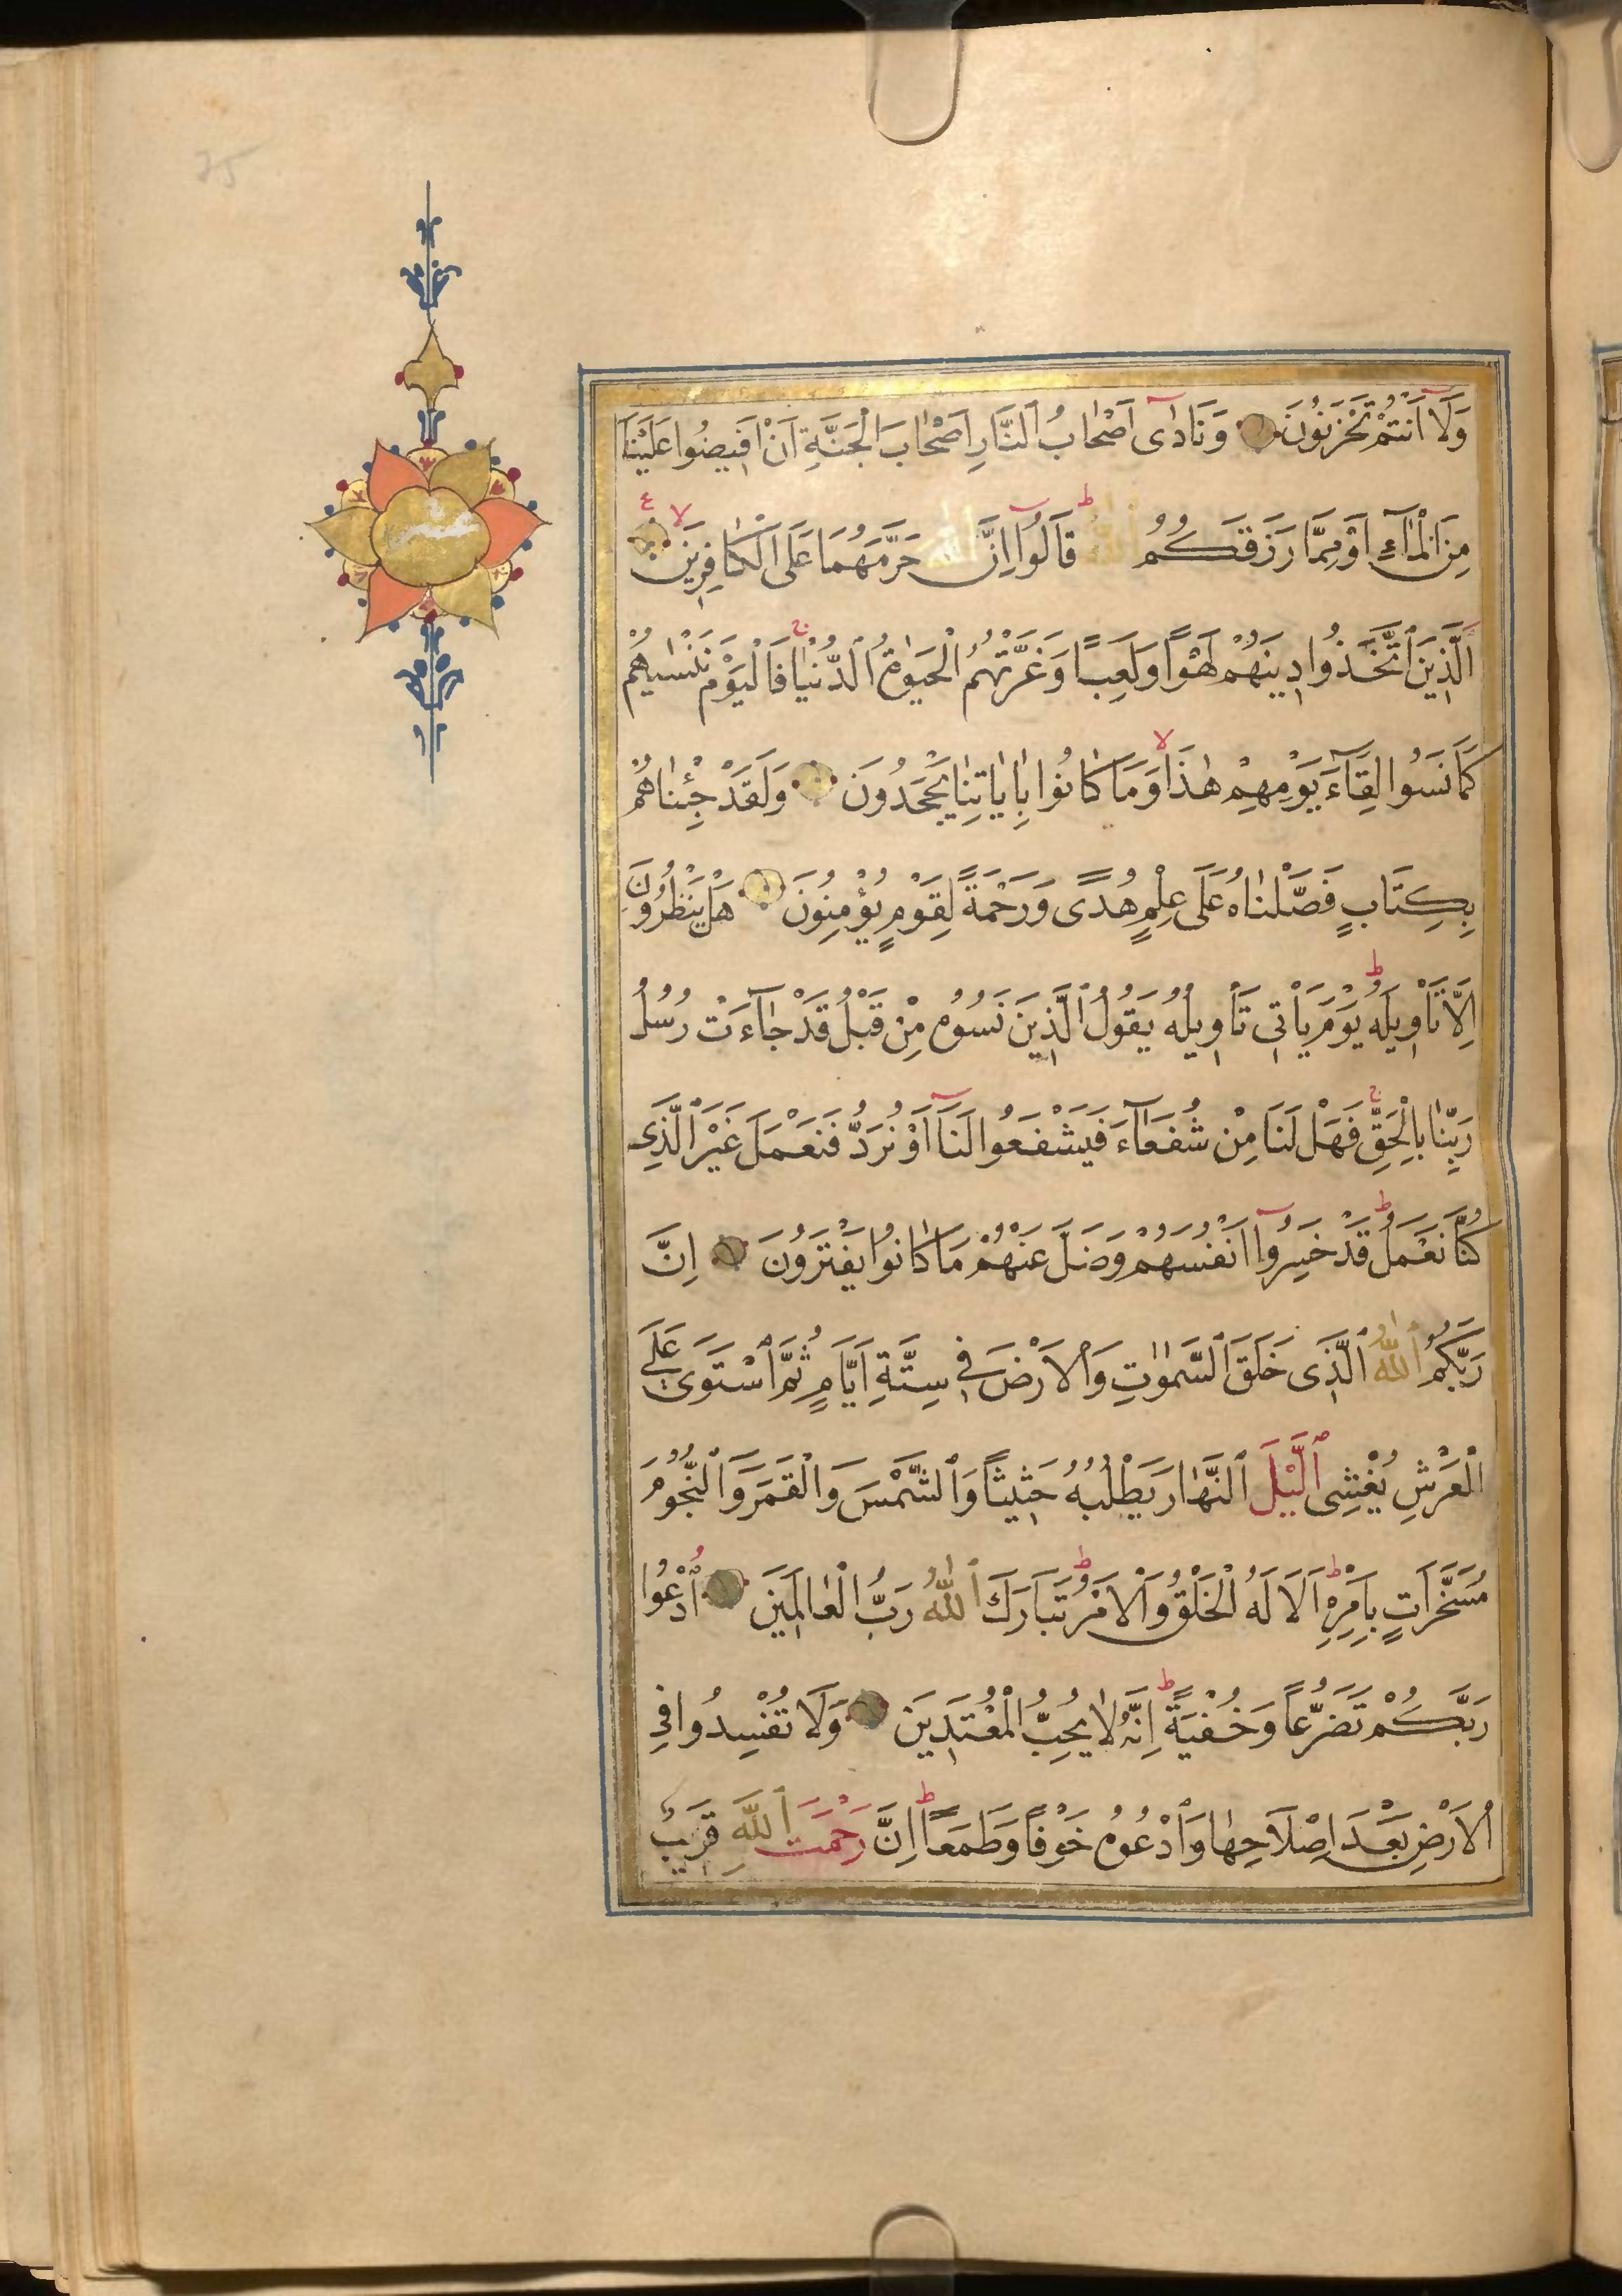 وَلَا اَنْتُمْ تَحْزَنُونَ وَنَادٰٓى اَصْحَابُ النَّارِ اَصْحَابَ الْجَنَّةِ اَنْ اَفِيضُوا عَلَيْنَا
مِنَ الْمَاءِ اَوْ مِمَّا رَزَقَكُمُ اللّٰهُ قَالُوٓا اِنَّ اللّٰهَ حَرَّمَهُمَا عَلَى الْكَافِرِينَ
اَلَّذِينَ اتَّخَذُوا دِينَهُمْ لَهْوًا وَلَعِبًا وَغَرَّتْهُمُ الْحَيٰوةُ الدُّنْيَا فَالْيَوْمَ نَنْسٰيهُمْ
كَمَا نَسُوا لِقَآءَ يَوْمِهِمْ هٰذَا وَمَا كَانُوا بِاٰيَاتِنَا يَجْحَدُونَ وَلَقَدْ جِئْنَاهُمْ
بِكِتَابٍ فَصَّلْنَاهُ عَلَى عِلْمٍ هُدًى وَرَحْمَةً لِقَوْمٍ يُؤْمِنُونَ هَلْ يَنْظُرُونَ
اِلَّا تَاْوِيلَهُ يَوْمَ يَاْتِى تَاْوِيلُهُ يَقُولُ الَّذِينَ نَسُوهُ مِنْ قَبْلُ قَدْ جَآءَتْ رُسُلُ
رَبِّنَا بِالْحَقِّ فَهَلْ لَنَا مِنْ شُفَعَآءَ فَيَشْفَعُوا لَنَآ اَوْ نُرَدُّ فَنَعْمَلَ غَيْرَ الَّذِى
كُنَّا نَعْمَلُ قَدْ خَسِرُوٓا اَنْفُسَهُمْ وَضَلَّ عَنْهُمْ مَا كَانُوا يَفْتَرُونَ اِنَّ
رَبَّكُمُ اللّٰهُ الَّذِى خَلَقَ السَّمٰوٰتِ وَالْاَرْضَ فِى سِتَّةِ اَيَّامٍ ثُمَّ اسْتَوَى عَلَى
الْعَرْشِ يُغْشِى الَّيْلَ النَّهَارَ يَطْلُبُهُ حَثِيثًا وَالشَّمْسَ وَالْقَمَرَ وَالنُّجُومَ
مُسَخَّرَاتٍ بِاَمْرِهِ اَلَا لَهُ الْخَلْقُ وَالْاَمْرُ تَبَارَكَ اللّٰهُ رَبُّ الْعَالَمِينَ اُدْعُوا
رَبَّكُمْ تَضَرُّعًا وَخُفْيَةً اِنَّهُ لَا يُحِبُّ الْمُعْتَدِينَ وَلَا تُفْسِدُوا فِى
الْاَرْضِ بَعْدَ اِصْلَاحِهَا وَادْعُوهُ خَوْفًا وَطَمَعًا اِنَّ رَحْمَتَ اللّٰهِ قَرِيبٌ